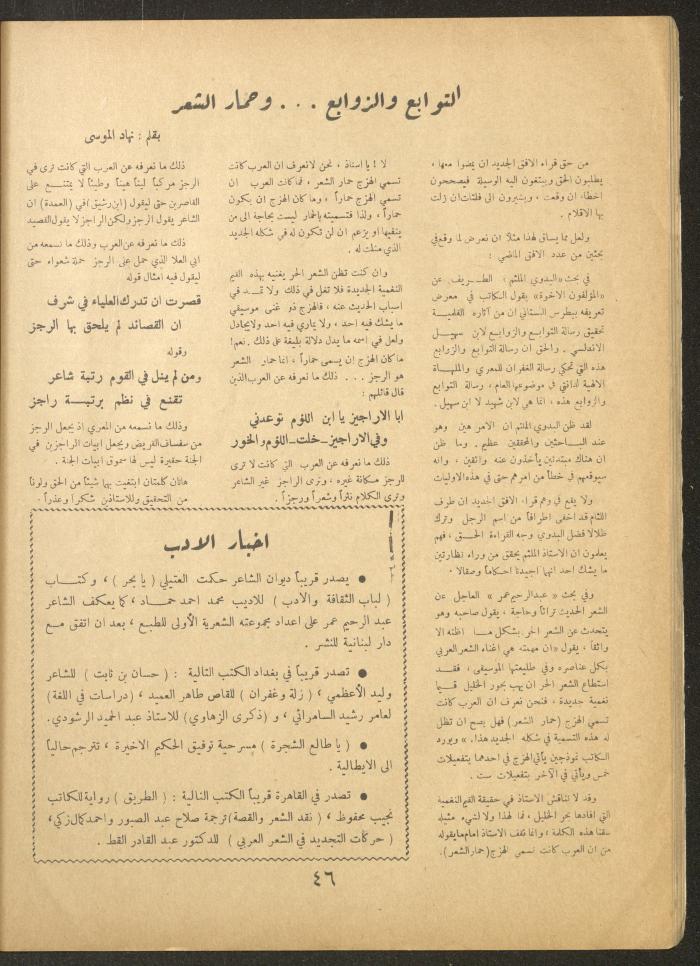 التوابع والزوابع . . . وحمار الشعر
بقلم : نهاد الموسى
من حق قراء الافق الجديد ان يمضوا معها ،
يطلبون الحق ويبتغون اليه الوسيلة فيصححون
اخطاء ان وقعت ، ويشيرون الى فلتات ان زلت
بها الاقلام .
ولعل مما يساق لهذا مثلاً ان نعرض لما وقع في
بحثين من عدد الافق الماضي :
في بحث «البدوي الملثم» الطـريف عن
«المؤلفون الاخوة» يقول الكاتب في معرض
تعريفه ببطرس البستاني ان من آثاره القلميـة
تحقيق رسالة التوابع والزوابع لابن سهيـل
الاندلسي . والحق ان رسالة التوابع والزوابع
هذه التي تحكي رسالة الغفران للمعري والملهـاة
الالهية لدانتي في موضوعها العام ، رسالة التوابع
والزوابع هذه ، انما هي لابن شهيد لا ابن سهيل .
لقد ظن البدوي الملثم ان الامر هين وهو
عند الباحثين والمحققين عظيم . وما ظن
ان هناك مبتدئين يأخذون عنه واثقين ، وانه
سيوقعهم في خطأ من امرهم حتى في هذه الاوليات
ولا يقع في وهم قراء الافق الجديد ان طرف
اللثام قد اخفى اطرافاً من اسم الرجل وترك
ظلالا فضل البدوي وجه القراءة الحق ، فهم
يعلمون ان الاستاذ الملثم يحقق من وراء نظارتين
ما يشك احد انها اجيدتا احكاماً وصقالا .
وفي بحث « عبدالرحيم عمر » العاجل عن
الشعر الحديث تراثاً وحاجة ، يقول صاحبه وهو
يتحدث عن الشعر الحر بشكل مـا اظنه الا
واثقاً ، يقول «ان مهمته هي اغناء الشعر العربي
بكل عناصره وفي طليعتها الموسيقى ، فقـد
استطاع الشعر الحر ان يهب بحور الخليل قيـماً
نغمية جديدة ، فنحن نعرف ان العرب كانت
تسمي الهزج (حمار الشعر) فهل يصح ان تظل
له هذه التسمية في شكله الجديد هذا.» ويورد
الكاتب نموذجين يأتي الهزج في احدهما بتفعيلات
خمس ويأتي في الآخر بتفعيلات ست .
وقد لا نناقش الاستاذ في حقيقة القيم النغمية
التي افادها بحر الخليل ، فما لهذا ولا لشيء مثيله
سقنا هذه الكلمة ، وانما نقف الاستاذ امام ما يقوله
من ان العرب كانت تسمي الهزج (حمار الشعر).
لا ! يا استاذ ، نحن لا نعرف ان العرب كانت
تسمي الهزج حمار الشعر ، فما كانت العرب ان
تسمي الهزج حماراً ، وما كان الهزج ان يكون
حماراً ، ولذا فتسميته بالحمار ليست بحاجة الى من
ينفيها او يزعم ان لن تكون له في شكله الجديد
الذي مثلت له .
وان كنت تظن الشعر الحر يغنيه بهذه القيم
النغمية الجديدة فلا تغل في ذلك ولا تمـد في
اسباب الحديث عنه ، فالهزج ذو غنى موسيقي
ما يشك فيه احد ، ولا يماري فيه احد ولا يجادل
ولعل في اسمه ما يدل دلالة بليغة على ذلك . نعم !
ما كان الهزج ان يسمى حماراً ، انما حمار الشعر
هو الرجز . . . ذلك ما نعرفه عن العرب الذين
قال قائلهم :
ابا الاراجيز يا ابن اللؤم توعدني
وفي الاراجيز - خلت - اللؤم والخور
ذلك ما نعرفه عن العرب التي كانت لا ترى
للرجز مكانة غيره ، وترى الراجز غير الشاعر
وترى الكلام نثراً وشعراً ورجزاً .
ذلك ما نعرفه عن العرب التي كانت ترى في
الرجز مركباً ليناً هيناً وطيئاً لا يمتنـع على
القاصرين حتى ليقول (ابن رشيق) في (العمدة) ان
الشاعر يقول الرجز ولكن الراجز لا يقول القصيد
ذلك ما نعرفه عن العرب وذلك ما نسمعه من
ابي العلا الذي حمل على الرجز حملة شعواء حتى
ليقول فيه امثال قوله
قصرت ان تدرك العلياء في شرف
ان القصائد لم يلحق بها الرجز
وقوله
ومن لم ينل في القوم رتبة شاعر
تقنع في نظم برتبـة راجز
وذلك ما نسمعه من المعري اذ يجعل الرجز
من سفساف القريض ويجعل ابيات الراجزين في
الجنة حقيرة ليس لها سموق ابيات الجنة .
هاتان كلمتان ابتغيت بها شيئاً من الحق ولوناً
من التحقيق وللاستاذين شكراً وعذراً .
اخبار الادب
● يصدر قريباً ديوان الشاعر حكمت العتيلي ( يا بحر ) ، وكتـاب
( لباب الثقافة والادب ) للاديب محمد احمد حمـاد ، كما يعكف الشاعر
عبد الرحيم عمر على اعداد مجموعته الشعرية الأولى للطبع ، بعد ان اتفق مـع
دار لبنانية للنشر .
● تصدر قريباً في بغداد الكتب التالية : ( حسان بن ثابت ) للشاعر
وليد الأعظمي ، ( زلة وغفران ) للقاص طاهر العميد ، (دراسات في اللغة)
لعامر رشيد السامرائي ، و (ذكرى الزهاوي) للاستاذ عبد الحميد الرشودي.
● ( يا طالع الشجرة ) مسرحية توفيق الحكيم الاخيرة ، تترجم حالياً
الى الايطالية .
● تصدر في القاهرة قريباً الكتب التالية : ( الطريق ) رواية للكاتب
نجيب محفوظ ، ( نقد الشعر والقصة) ترجمة صلاح عبد الصبور واحمد كمال زكي ،
( حركات التجديد في الشعر العربي ) للدكتور عبد القادر القط .
٤٦